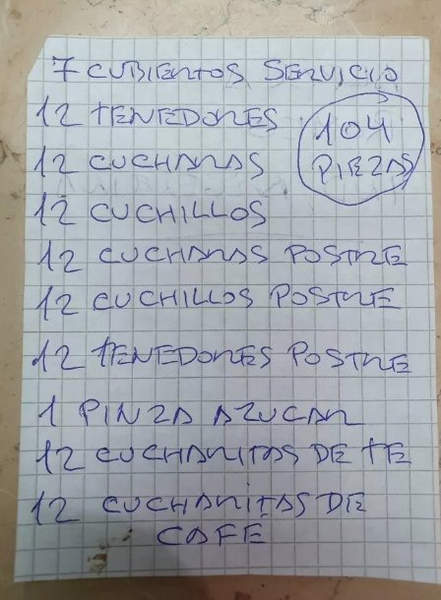 7 CUBIERTOS SERVICIO
12 TENEDORES
104
12 CUCHARAS
PIEZAS
12 CUCHILLOS
12 CUCHARAS POSTRE
12 CUCHILLOS POSTRE
12 TENEDORES POSTRE
1 PINZA AZUCAR
12 CUCHARITAS DE TE
12 CUCHARITAS DE
CAFÉ